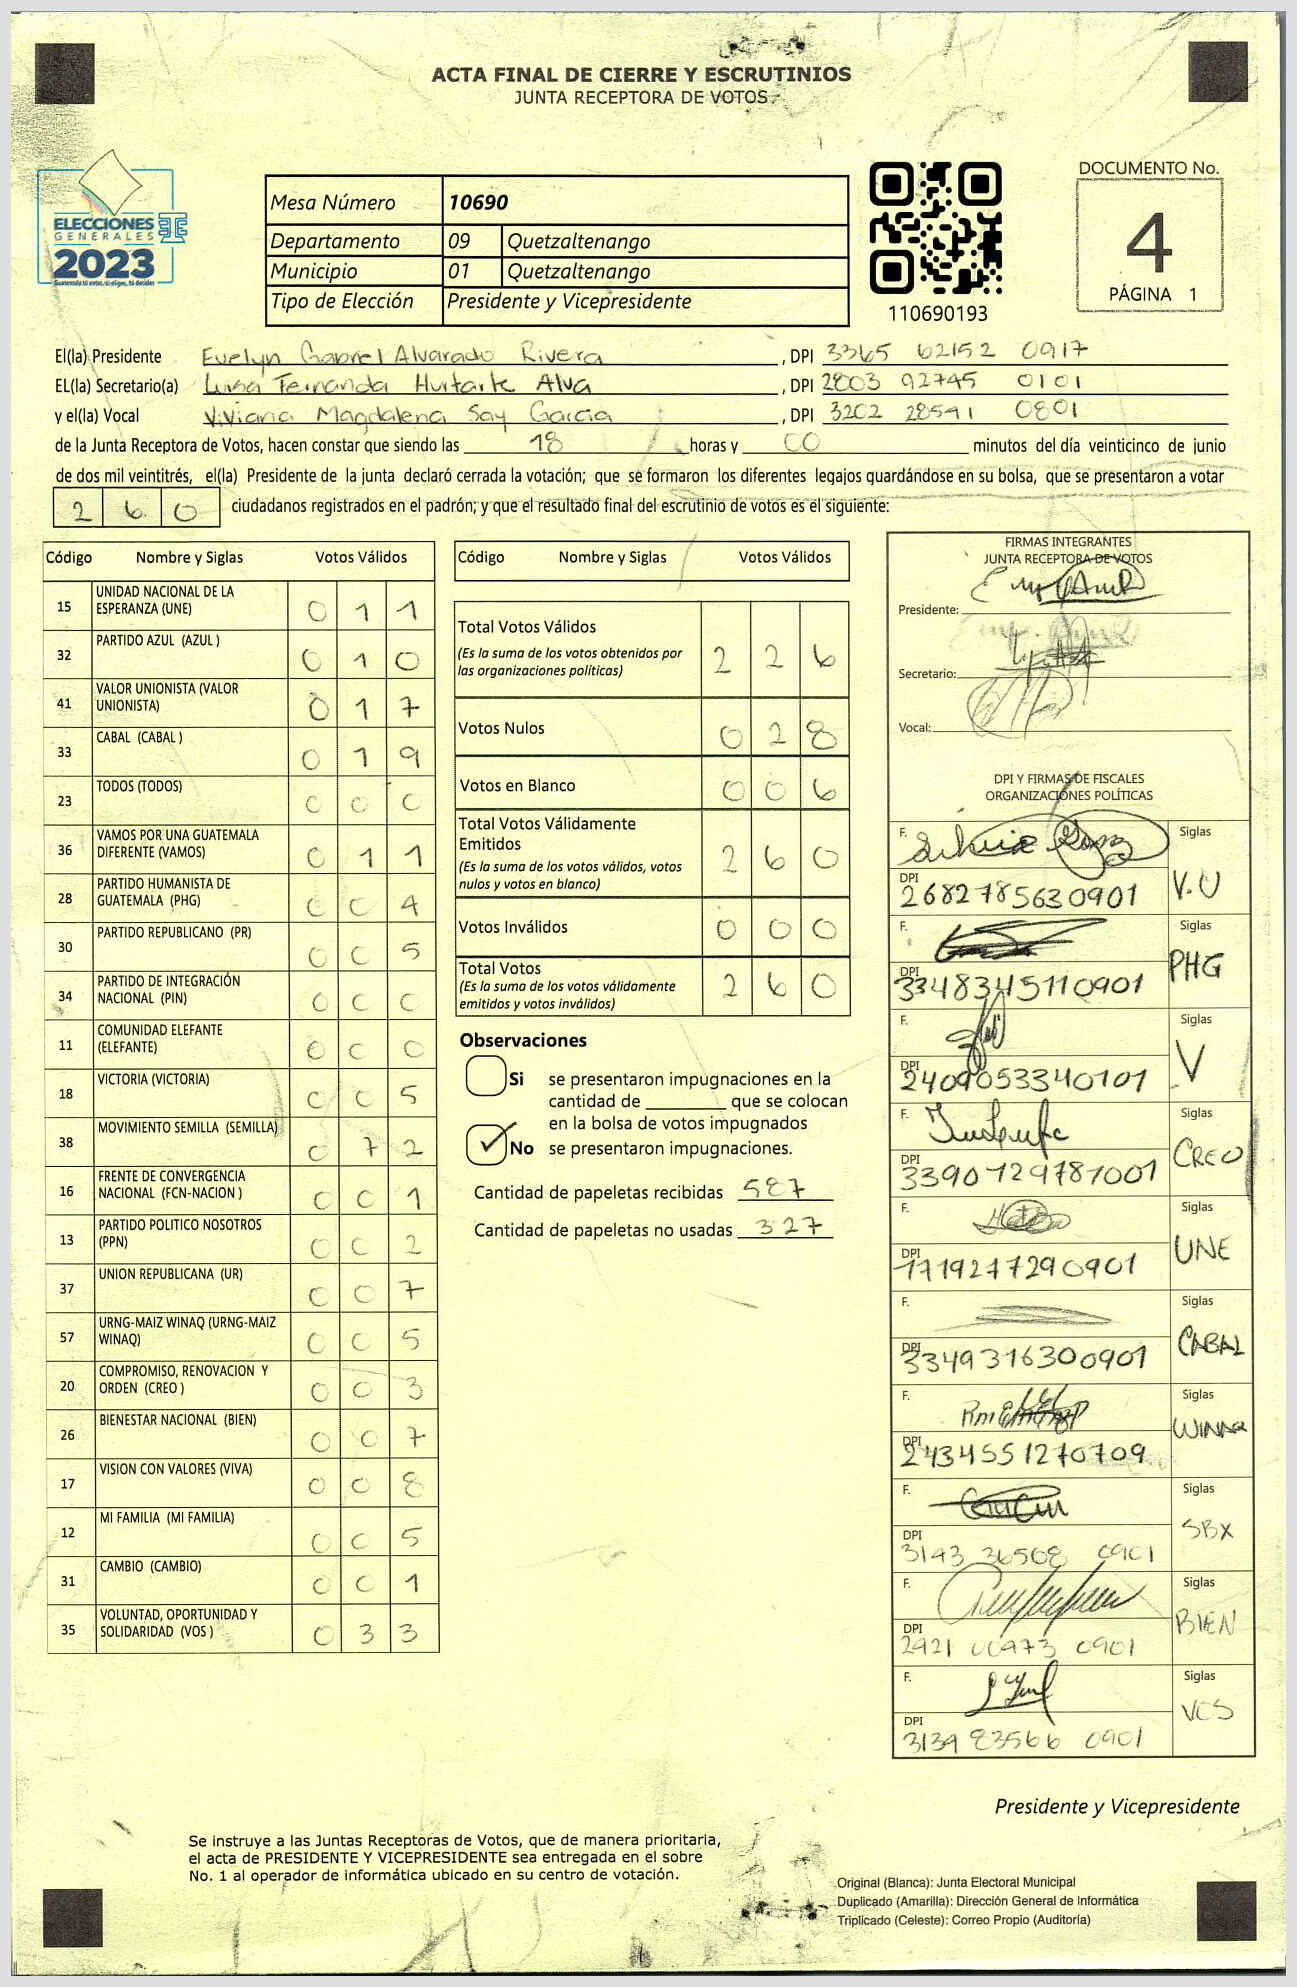 ACTA FINAL DE CIERRE Y ESCRUTINIOS
JUNTA RECEPTORA DE VOTOS
DOCUMENTO No.
4
PÁGINA 1
ELECCIONES
GENERALES
2023
Mesa Número 10690
Departamento 09 Quetzaltenango
Municipio 01 Quetzaltenango
Tipo de Elección Presidente y Vicepresidente
110690193
El(la) Presidente Evelyn Gabriel Alvarado Rivera , DPI 3365 62152 0917
EL(la) Secretario(a) Luisa Fernanda Hurtarte Alva , DPI 2803 92745 0101
y el(la) Vocal Viviana Magdalena Say García , DPI 3202 28591 0801
de la Junta Receptora de Votos, hacen constar que siendo las 18 horas y 00 minutos del día veinticinco de junio
de dos mil veintitrés, el(la) Presidente de la junta declaró cerrada la votación; que se formaron los diferentes legajos guardándose en su bolsa, que se presentaron a votar
260 ciudadanos registrados en el padrón; y que el resultado final del escrutinio de votos es el siguiente:
Código Nombre y Siglas Votos Válidos
15 UNIDAD NACIONAL DE LA
ESPERANZA (UNE) 0 1 1
32 PARTIDO AZUL (AZUL ) 0 1 0
41 VALOR UNIONISTA (VALOR
UNIONISTA) 0 1 7
33 CABAL (CABAL ) 0 1 9
23 TODOS (TODOS) 0 0 0
36 VAMOS POR UNA GUATEMALA
DIFERENTE (VAMOS) 0 1 1
28 PARTIDO HUMANISTA DE
GUATEMALA (PHG) 0 0 4
30 PARTIDO REPUBLICANO (PR) 0 0 5
34 PARTIDO DE INTEGRACIÓN
NACIONAL (PIN) 0 0 0
11 COMUNIDAD ELEFANTE
(ELEFANTE) 0 0 0
18 VICTORIA (VICTORIA) 0 0 5
38 MOVIMIENTO SEMILLA (SEMILLA) 0 7 2
16 FRENTE DE CONVERGENCIA
NACIONAL (FCN-NACION ) 0 0 1
13 PARTIDO POLITICO NOSOTROS
(PPN) 0 0 2
37 UNION REPUBLICANA (UR) 0 0 7
57 URNG-MAIZ WINAQ (URNG-MAIZ
WINAQ) 0 0 5
20 COMPROMISO, RENOVACION Y
ORDEN (CREO ) 0 0 3
26 BIENESTAR NACIONAL (BIEN) 0 0 7
17 VISION CON VALORES (VIVA) 0 0 8
12 MI FAMILIA (MI FAMILIA) 0 0 5
31 CAMBIO (CAMBIO) 0 0 1
35 VOLUNTAD, OPORTUNIDAD Y
SOLIDARIDAD (VOS ) 0 3 3
Código Nombre y Siglas Votos Válidos
Total Votos Válidos 2 2 6
(Es la suma de los votos obtenidos por
las organizaciones políticas)
Votos Nulos 0 2 8
Votos en Blanco 0 0 6
Total Votos Válidamente
Emitidos 2 6 0
(Es la suma de los votos válidos, votos
nulos y votos en blanco)
Votos Inválidos 0 0 0
Total Votos 2 6 0
(Es la suma de los votos válidamente
emitidos y votos inválidos)
Observaciones
Si se presentaron impugnaciones en la
cantidad de ________ que se colocan
en la bolsa de votos impugnados
No se presentaron impugnaciones.
Cantidad de papeletas recibidas 587
Cantidad de papeletas no usadas 327
FIRMAS INTEGRANTES
JUNTA RECEPTORA DE VOTOS
Presidente:
Secretario:
Vocal:
DPI Y FIRMAS DE FISCALES
ORGANIZACIONES POLÍTICAS
F. Siglas
DPI 2682785630901 V.U
F. Siglas
DPI 3348345110901 PHG
F. Siglas
DPI 2409053340101 V
F. Siglas
DPI 3390729781001 CREO
F. Siglas
DPI 1719277290901 UNE
F. Siglas
DPI 3349316300901 CABAL
F. Siglas
DPI 2434551270709 WINAQ
F. Siglas
DPI 3193 36508 0901 SBX
F. Siglas
DPI 2921 00973 0901 BIEN
F. Siglas
DPI 3139 83566 0901 VOS
Presidente y Vicepresidente
Se instruye a las Juntas Receptoras de Votos, que de manera prioritaria,
el acta de PRESIDENTE Y VICEPRESIDENTE sea entregada en el sobre
No. 1 al operador de informática ubicado en su centro de votación.
Original (Blanca): Junta Electoral Municipal
Duplicado (Amarilla): Dirección General de Informática
Triplicado (Celeste): Correo Propio (Auditoría)